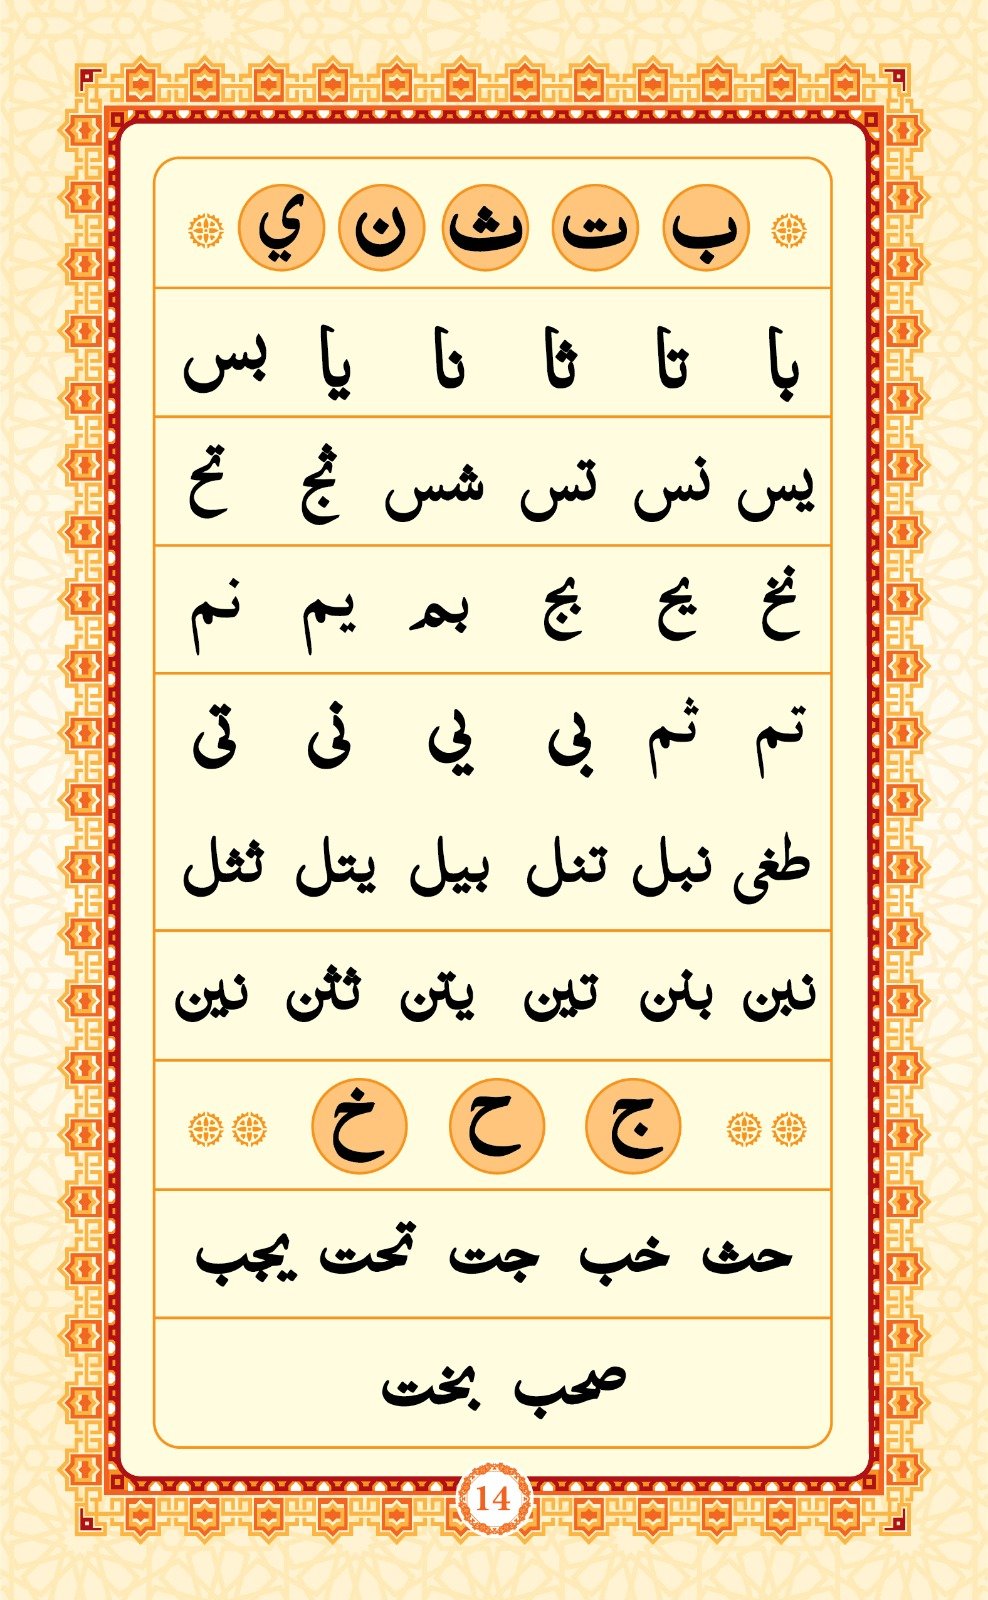 ب ت ث ن ي
با تا ثا نا يا بس
يس نس تس شس ثج تح
نخ يح بج بم يم نم
تم ثم بي يي نى تى
طغى نبل تنل بيل يتل ثثل
نبن بنن تين يتن ثثن نين
ج ح خ
حث خب جت تحت يجب
صحب بخت
14